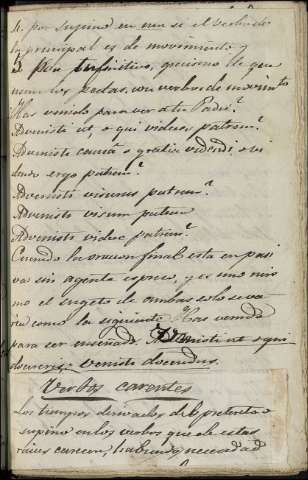 4. por supino en um si el verbo de
la principal es de movimiento y
5. Por infinitivo, guiarismo de que
usan los poetas, con verbos de movimiento
Has venido para ver a tu Padre?
Advenisti ut, o qui videas patrem?
Advenisti causâ o gratia videndi, o vi
dendi ergo patrem?
Advenisti visurus patrem?
Advenisti visum patrem
Advenisti videre patrem?
Cuando la oracion final esta en pasi
va sin agente espreso, y es uno mis
mo el sugeto de ambas solo se va
ria como la siguiente Has venido
para ser enseñado Advenisti ut o qui
docereris: venisti docendus.
Verbos carentes
Los tiempos derivados del pretérito o
supino en los verbos que de estas
raices carecen, habiendo necesidad